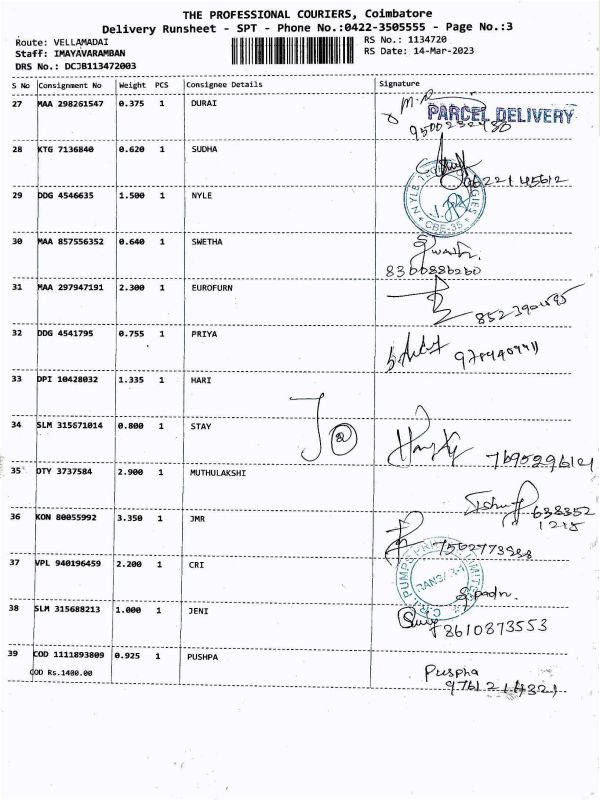 THE PROFESSIONAL COURIERS, Coimbatore
Delivery Runsheet - SPT - Phone No.:0422-3505555 - Page No.:3
Route: VELLAMADAI
Staff: IMAYAVARAMBAN
DRS No.: DCJB113472003
RS No.: 1134720
RS Date: 14-Mar-2023
S No Consignment No Weight PCS Consignee Details Signature
27 MAA 298261547 0.375 1 DURAI
PARCEL DELIVERY
9500232480
28 KTG 7136840 0.620 1 SUDHA
29 DDG 4546635 1.500 1 NYLE
CBE-35
30 MAA 857556352 0.640 1 SWETHA
Swathi
8300886260
31 MAA 297947191 2.300 1 EUROFURN
32 DDG 4541795 0.755 1 PRIYA
33 DPI 10428032 1.335 1 HARI
34 SLM 315671014 0.800 1 STAY
7695296121
35 DTY 3737584 2.900 1 MUTHULAKSHI
638352
1215
36 KON 80055992 3.350 1 JMR
7502773988
37 VPL 940196459 2.200 1 CRI
38 SLM 315688213 1.000 1 JENI
8610873553
39 COD 1111893809 0.925 1 PUSHPA
COD Rs.1400.00
Puspha
9761214321